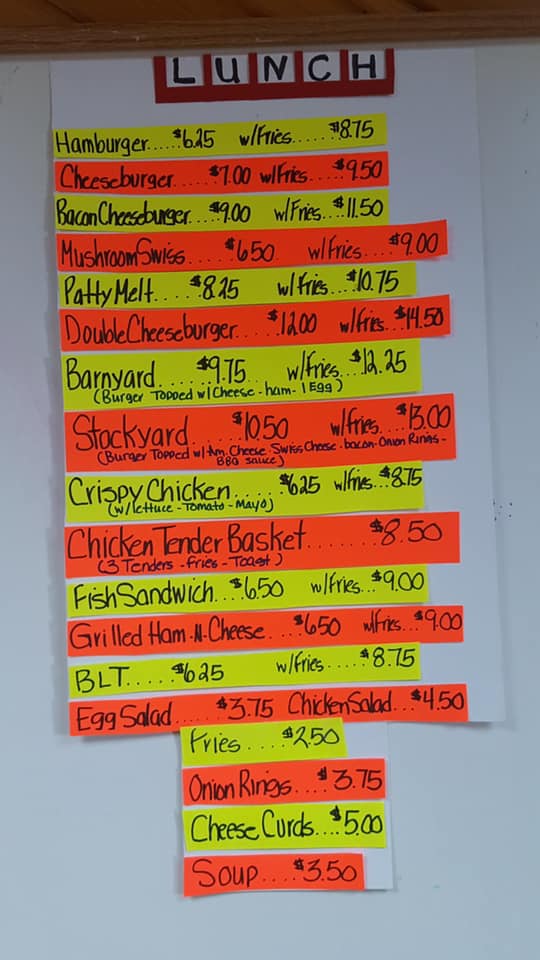 LUNCH
Hamburger.....$6.25 w/Fries.....$8.75
Cheeseburger.....$7.00 w/Fries....$9.50
Bacon Cheeseburger...$9.00 w/Fries...$11.50
Mushroom Swiss....$6.50 w/Fries....$9.00
Patty Melt.....$8.25 w/Fries...$10.75
Double Cheeseburger....$12.00 w/Fries...$14.50
Barnyard......$9.75 w/Fries...$12.25
(Burger Topped w/Cheese-ham-1 Egg)
Stockyard.....$10.50 w/fries....$13.00
(Burger Topped w/Am.Cheese-Swiss Cheese-bacon-Onion Rings-
BBQ sauce)
Crispy Chicken.....$6.25 w/fries...$8.75
(w/lettuce-Tomato-Mayo)
Chicken Tender Basket.......$8.50
(3 Tenders-fries-Toast)
Fish Sandwich...$6.50 w/Fries...$9.00
Grilled Ham-N-Cheese...$6.50 w/Fries...$9.00
BLT.....$6.25 w/Fries.....$8.75
Egg Salad.....$3.75 Chicken Salad...$4.50
Fries.....$2.50
Onion Rings....$3.75
Cheese Curds...$5.00
Soup....$3.50